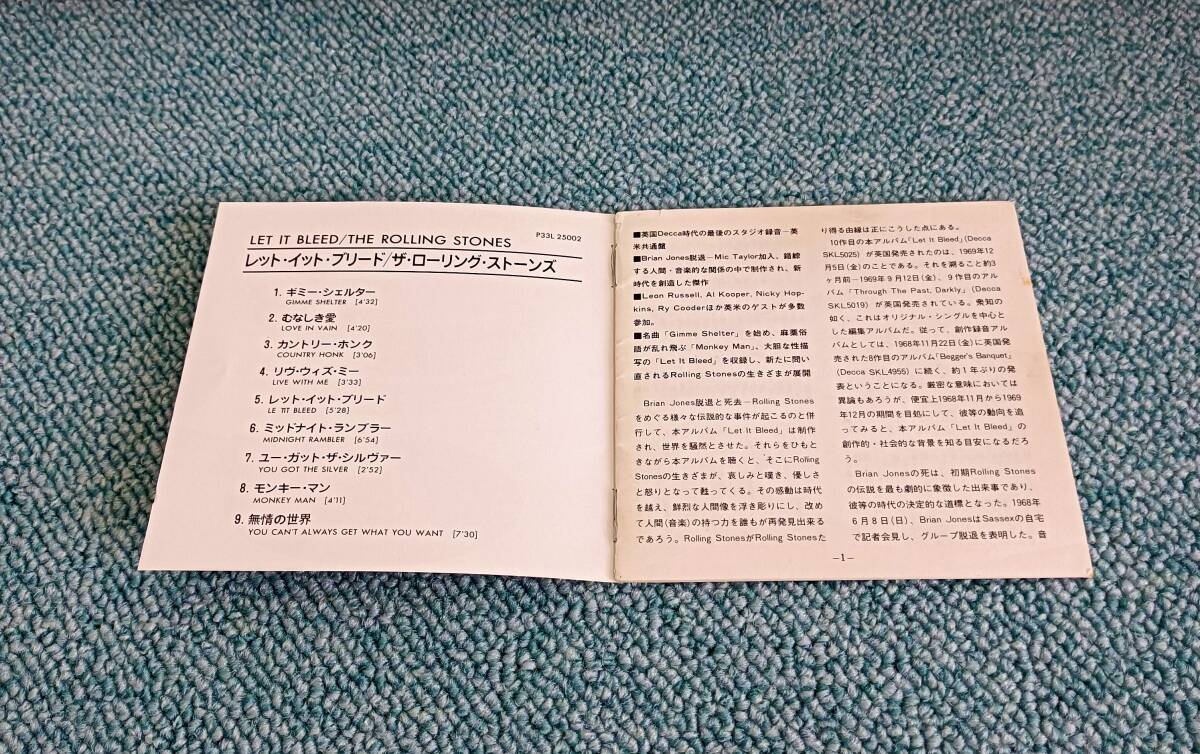 LET IT BLEED/THE ROLLING STONES
P33L 25002
レット・イット・ブリード/ザ・ローリング・ストーンズ
1. ギミー・シェルター
GIMME SHELTER [4'32]
2. むなしき愛
LOVE IN VAIN [4'20]
3. カントリー・ホンク
COUNTRY HONK [3'06]
4. リヴ・ウィズ・ミー
LIVE WITH ME [3'33]
5. レット・イット・ブリード
LE TIT BLEED [5'28]
6. ミッドナイト・ランブラー
MIDNIGHT RAMBLER [6'54]
7. ユー・ガット・ザ・シルヴァー
YOU GOT THE SILVER [2'52]
8. モンキー・マン
MONKEY MAN [4'11]
9. 無情の世界
YOU CAN'T ALWAYS GET WHAT YOU WANT [7'30]
■英国Decca時代の最後のスタジオ録音―英
米共通盤
■Brian Jones脱退―Mic Taylor加入、錯綜
する人間・音楽的な関係の中で制作され、新
時代を創造した傑作
■Leon Russell, Al Kooper, Nicky Hop-
kins, Ry Cooderほか英米のゲストが多数
参加。
■名曲「Gimme Shelter」を始め、麻薬俗
語が乱れ飛ぶ「Monkey Man」、大胆な性描
写の「Let It Bleed」を収録し、新たに問い
直されるRolling Stonesの生きざまが展開
Brian Jones脱退と死去―Rolling Stones
をめぐる様々な伝説的な事件が起こるのと併
行して、本アルバム「Let It Bleed」は制作
され、世界を騒然とさせた。それらをひもと
きながら本アルバムを聴くと、そこにRolling
Stonesの生きざまが、哀しみと嘆き、優しさ
と怒りとなって甦ってくる。その感動は時代
を越え、鮮烈な人間像を浮き彫りにし、改め
て人間(音楽)の持つ力を誰もが再発見出来る
であろう。Rolling StonesがRolling Stonesた
り得る由縁は正にこうした点にある。
10作目の本アルバム「Let It Bleed」(Decca
SKL5025) が英国発売されたのは、1969年12
月5日(金)のことである。それを溯ること約3
ヶ月前―1969年9月12日(金)、9作目のアル
バム「Through The Past, Darkly」(Decca
SKL5019) が英国発売されている。衆知の
如く、これはオリジナル・シングルを中心と
した編集アルバムだ。従って、創作録音アル
バムとしては、1968年11月22日(金)に英国発
売された8作目のアルバム「Begger's Banquet」
(Decca SKL4955) に続く、約1年ぶりの発
表ということになる。厳密な意味においては
異論もあろうが、便宜上1968年11月から1969
年12月の期間を目処にして、彼等の動向を追
ってみると、本アルバム「Let It Bleed」の
創作的・社会的な背景を知る目安になるだろ
う。
Brian Jonesの死は、初期Rolling Stones
の伝説を最も劇的に象徴した出来事であり、
彼等の時代の決定的な道標となった。1968年
6月8日(日)、Brian JonesはSassexの自宅
で記者会見し、グループ脱退を表明した。音
―1―